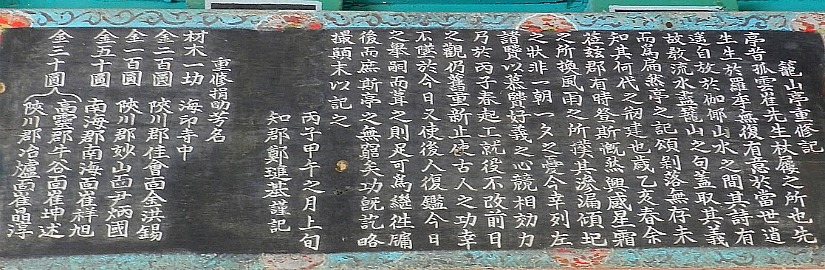 籠山亭重修記
亭昔孤雲崔先生杖屨之所也先
生生於羅季無復有意於當世逍
遙自放於伽倻山水之間其詩有
故敎流水盡籠山之句盖取其義
而爲扁然亭之記頌剝落無存未
知其何代之刱建也歲乙亥春余
莅玆郡有時登斯慨然興感星霜
之所換風雨之所撲其滲漏傾圮
之狀非一朝一夕之憂今幸列左
諸賢以慕賢好義之心競相効力
乃於丙子春起工就役不改前日
之觀仍舊重新止使古人之功幸
不墜於今日又使後人復鑑今日
之擧嗣而葺之則足可爲繼徃牖
後而庶斯亭之無窮矣功旣訖略
撮顚末以記之
丙子甲午之月上旬
知郡鄭璉基謹記
重修捐助芳名
材木一切 海印寺中
金二百圓 陜川郡佳會面金洪錫
金一百圓 陜川郡妙山面尹炳國
金五十圓 南海郡南海面崔祥旭
金三十圓 高靈郡牛谷面崔坤述
陜川郡冶爐面崔晶淳